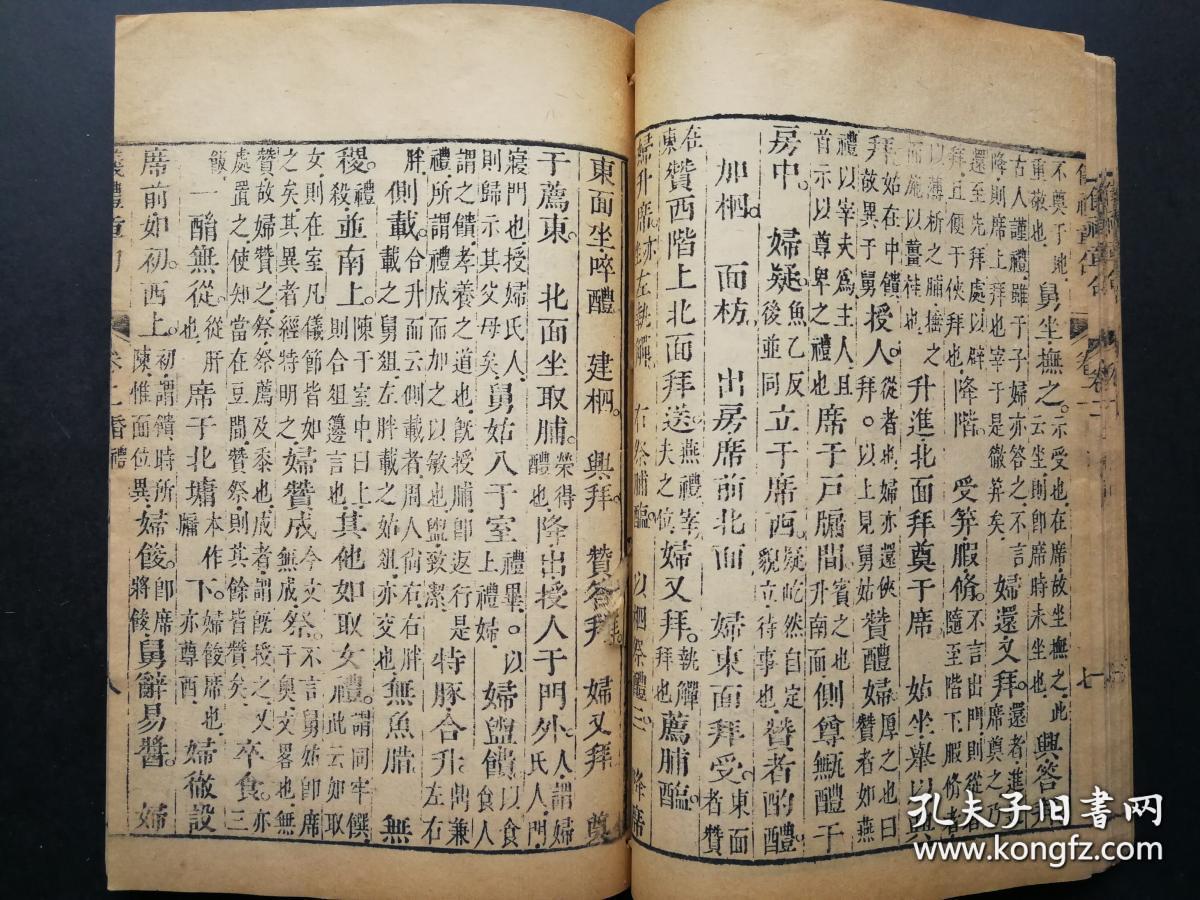 儀禮章句 卷二 七
不奠于地重敬也舅坐撫之示受也在席故坐撫之此云坐則即席時未坐也興答
古人謹禮雖于子婦亦答之不言降則席上拜也宰于是徹笲矣婦還又拜還者進席奠之
還至先拜處以辟拜且便于俠拜也降階受笲腶脩不言出門則從者隨至階下腶脩者
以薄析之脯捶之而施以薑桂也升進北面拜奠于席姑坐舉以興
拜敬異于舅授人從者也婦亦還俠拜以上見舅姑贊醴婦厚之也曰贊者如燕
禮以宰夫爲主人且首示以尊卑之禮也席于戶牖間賓之也升南面側尊甒醴于
房中婦疑魚乙反後並同立于席西疑屹然自定貌立待事也贊者酌醴
加柶面枋出房席前北面婦東面拜受東面者贊
在東贊西階上北面拜送燕禮宰夫之位婦又拜執觶拜也薦脯醢
婦升席左執觶右祭脯醢以柶祭醴三降席
東面坐啐醴建柶興拜贊答拜婦又拜奠
于薦東北面坐取脯榮得醴也降出授人于門外人謂婦氏人門
寢門也授婦氏人則歸示其父母矣舅姑入于室禮畢上禮婦以婦盥饋以食食人
謂之饋孝養之道也既授脯卽返行是禮所謂禮成而加之以敏也盥致潔特豚合升鼎兼左右
胖側載合升而云側載者周人尙右右胖載之舅俎左胖載之姑俎亦交也無魚腊無
稷禮殺並南上陳于室中曰上則合俎籩言也其他如取女禮謂同牢饌此云如取
女則在室凡儀節皆如之矣其異者經特明之婦贊成祭今文無成不言舅姑卽席于奧文畧也
贊故婦贊之祭祭薦及黍也成者謂旣授之又處置之使知當在豆間贊祭則其餘皆贊矣卒食三亦
飯一酳無從從肝也席于北墉本作牖下婦餕席也亦尊西婦徹設
席前如初西上初謂饋時所陳惟面位異婦餕卽席將餕舅辭易醬婦
儀禮章句 卷二昏禮 八
孔夫子旧书网
www.kongfz.com